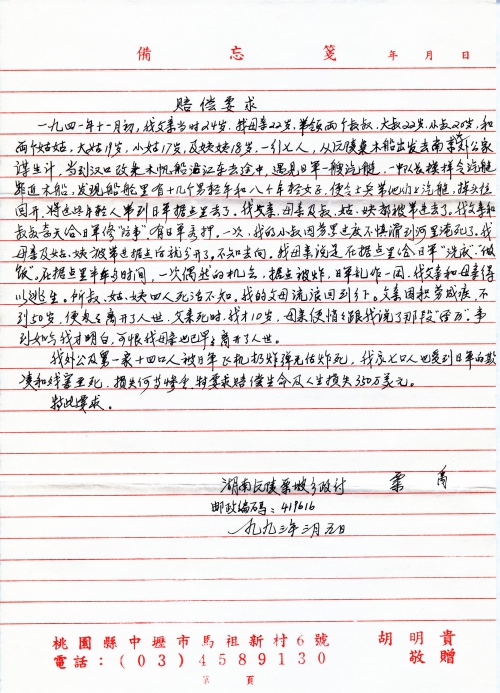 備忘箋 年 月 日
赔偿要求
一九四一年十一月初，我父亲当时24岁，我母亲22岁，带领两个叔叔，大叔22岁，小叔20岁，和
两个姑姑，大姑19岁，小姑17岁，及妹妹18岁，一行七人，从沅陵乘木船出发去南
谋生计，当到汉口改乘木帆船沿江东去途中，遇见日军一艘汽艇，一中队长模样令汽艇
靠近木船，发现船舱里有十几个男轻年和八、九个年轻女子，便令士兵带他们上汽艇，掉头往
回开，将这些年轻人带到日军据点里去了。我父亲、母亲及叔、姑、妹都被带进去了。我父亲和
叔叔每天给日军修"防事"，有日军看押。一次，我的小叔因劳累过度不慎滑到河里淹死了。我
母亲及姑、妹被带进据点后就分开了，不知去向。我母亲说是在据点里给日军"洗衣"、"做
饭"。在据点里半年多时间，一次偶然的机会，据点被炸，日军乱作一团，我父亲和母亲得
以逃生。所叔、姑、妹四人死活不知。我的父母流浪回到乡下。父亲因积劳成疾，不
到50岁，便离开了人世，父亲死时，我才10岁，母亲便悄悄跟我说了那段"经历"。事
到如今我才明白，可恨我母亲也已早早离开了人世。
我外公及第一家十四口人被日军飞机扔炸弹无估炸死，我家七口人也受到日军的欺
凌和残害至死，损失何等惨重，特要求赔偿生命及人生损失350万美元。
特此要求。
湖南沅陵栗坡乡政付 栗
邮政编码：419616
一九九三年三月五日
桃園縣中壢市馬祖新村6號 胡明貴
電話：(03)4589130 敬贈
第 頁